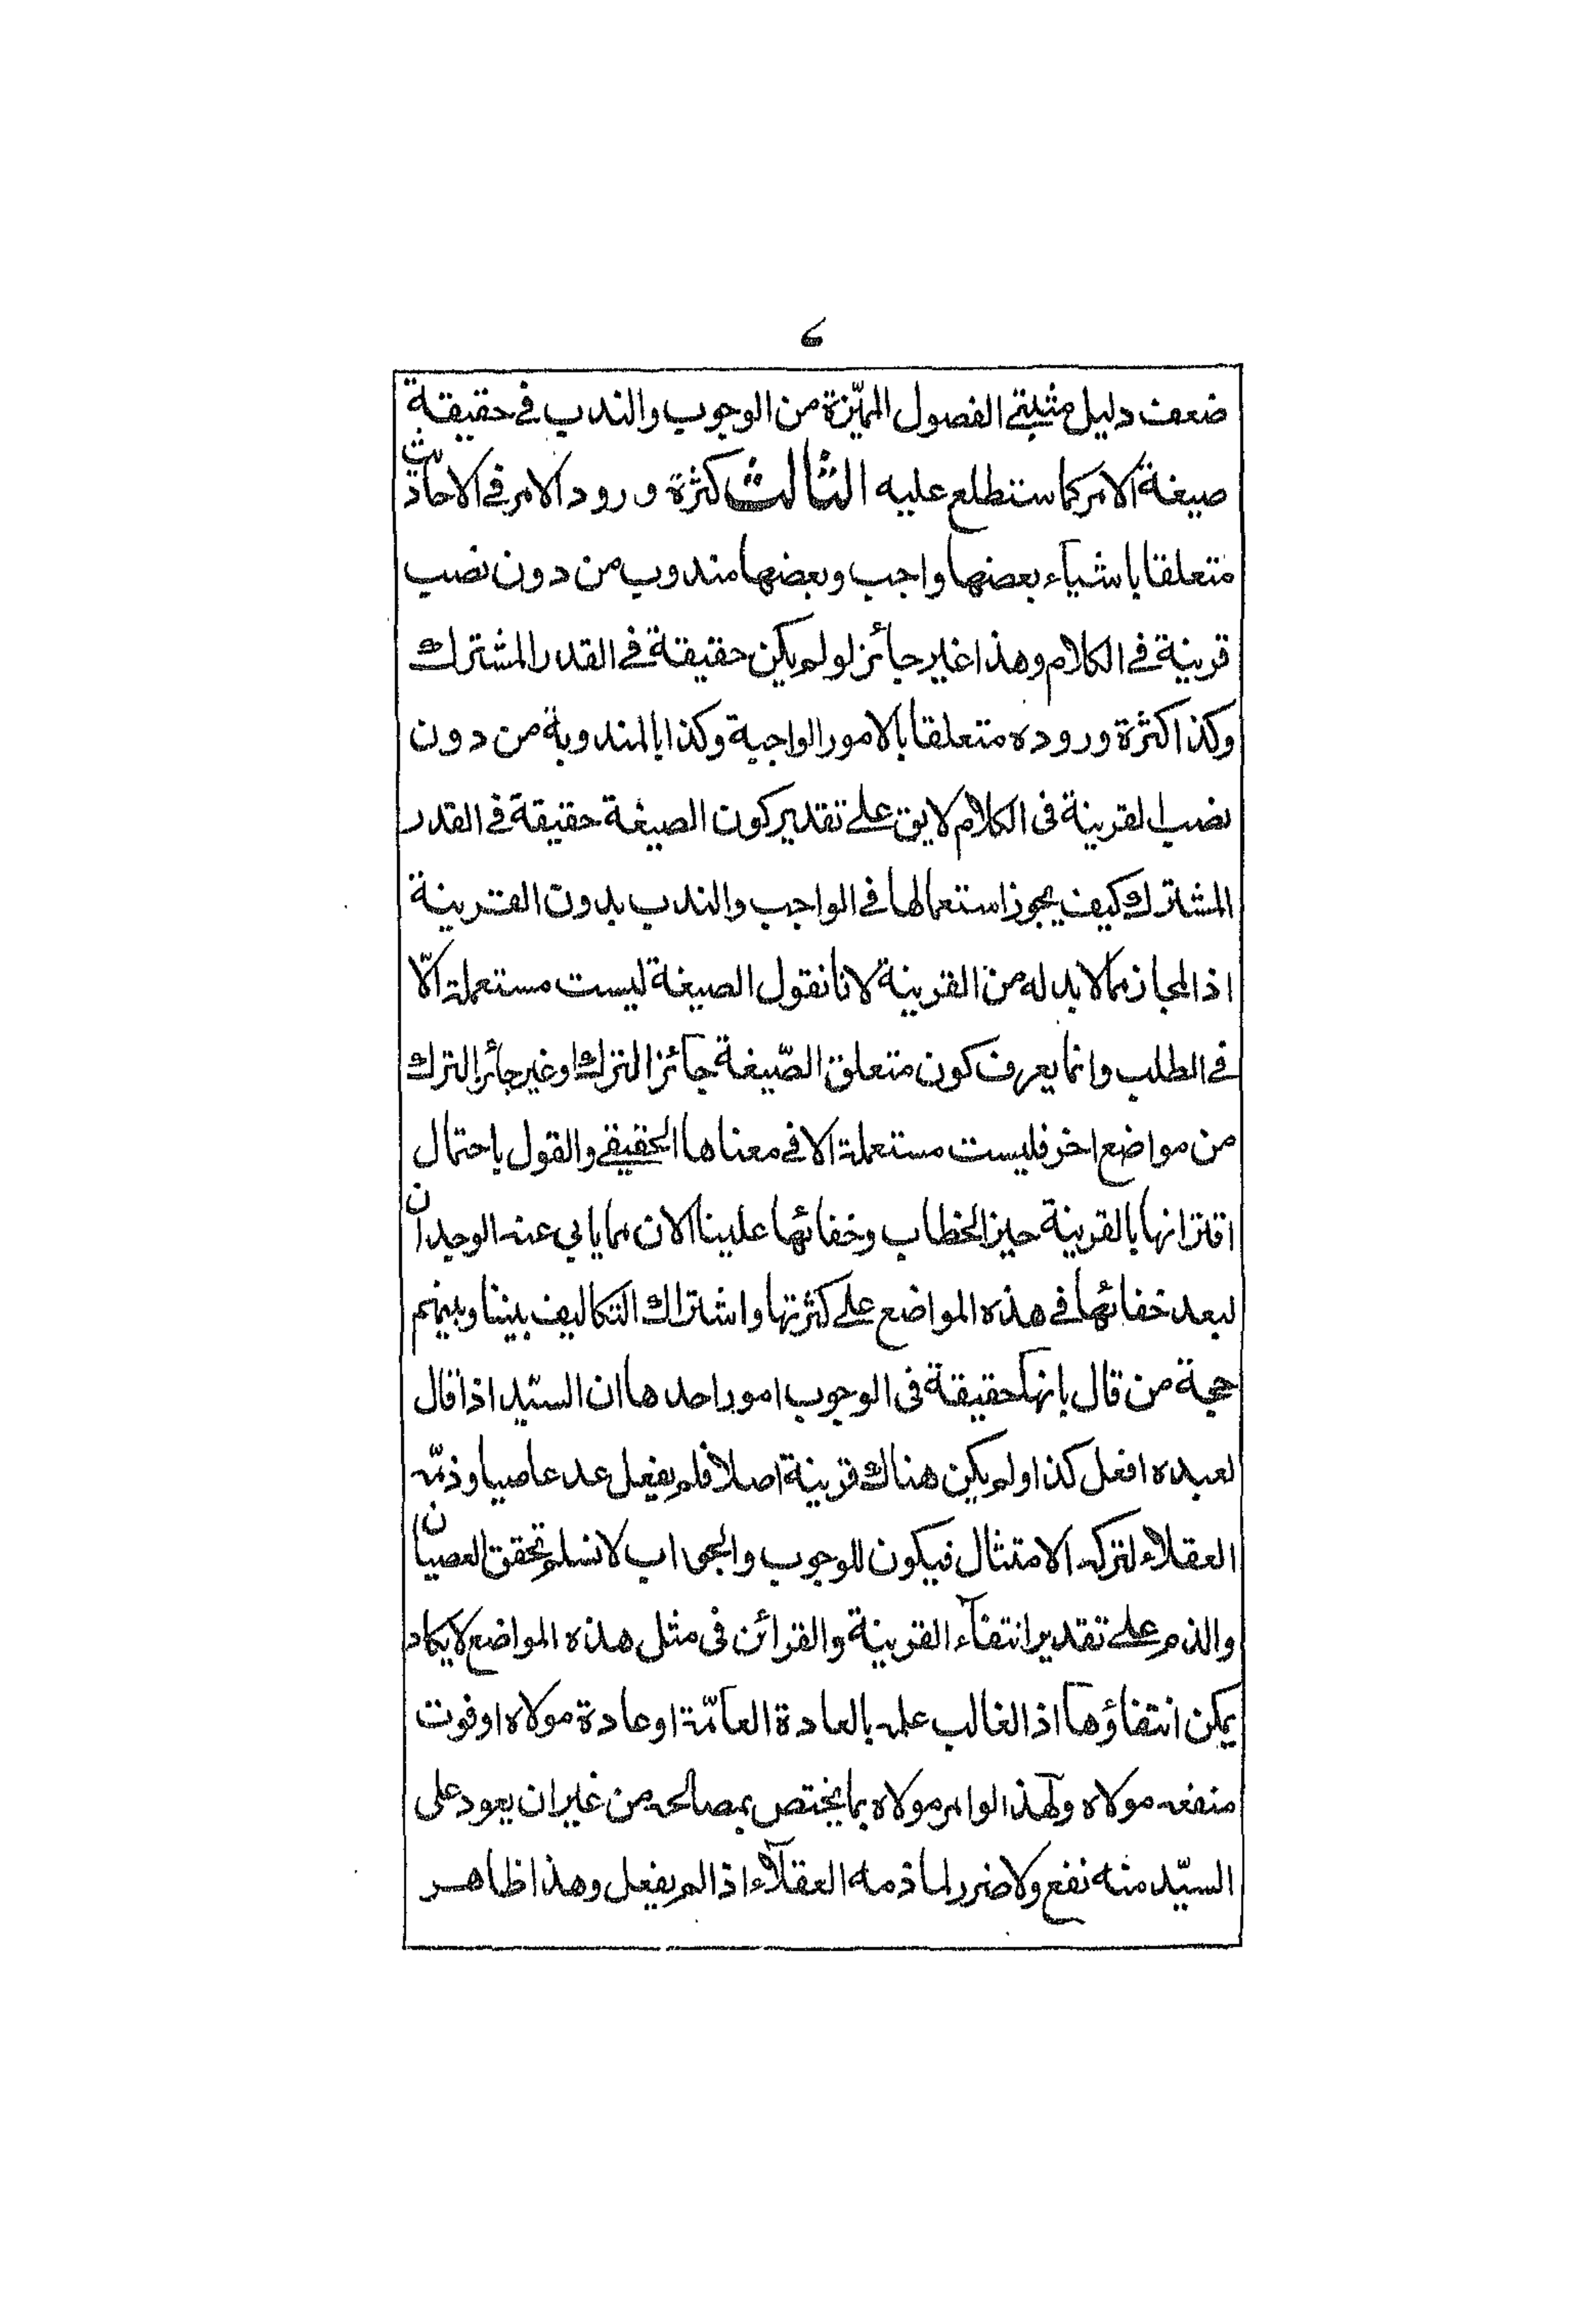 ٦
ضعف دليل مثبتي الفصول المميّزة من الوجوب والندب في حقيقة
صيغة الامر كما ستطلع عليه الثالث كثرة ورود الامر في الاحاديث
متعلقا باشيآء بعضها واجب وبعضها مندوب من دون نصب
قرينة في الكلام وهذا غير جائز لو لم يكن حقيقة في القدر المشترك
وكذا كثرة وروده متعلقا بالامور الواجبة وكذا بالمندوبة من دون
نصب القرينة فى الكلام لايق على تقدير كون الصيغة حقيقة في القدر
المشترك كيف يجوز استعمالها في الواجب والندب بدون القرينة
اذ المجاز مما لا بد له من القرينة لانا نقول الصيغة ليست مستعملة الّا
في الطلب وانما يعرف كون متعلق الصّيغة جائز الترك او غير جائز الترك
من مواضع اخر فليست مستعملة الا في معناها الحقيقي والقول باحتمال
اقترانها بالقرينة حين الخطاب وخفائها علينا الان مما يابي عنه الوجدان
لبعد خفائها في هذه المواضع على كثرتها واشتراك التكاليف بيننا وبينهم
حجة من قال بانها حقيقة فى الوجوب امور احدها ان السيّد اذا قال
لعبده افعل كذا ولم يكن هناك قرينة اصلا فلم يفعل عد عاصيا وذمّه
العقلاء لتركه الامتثال فيكون للوجوب والجواب لا نسلم تحقق العصيان
والذم على تقدير انتفآء القرينة والقرائن فى مثل هذه المواضع لا يكاد
يمكن انتفاؤها اذ الغالب علمه بالعادة العآمّة او عادة مولاه او فوت
منفعه مولاه ولهذا لو امر مولاه بما يختص بمصالحه من غير ان يعود على
السيّد منه نفع ولا ضرر لما ذمه العقلآء اذا لم يفعل وهذا ظاهر